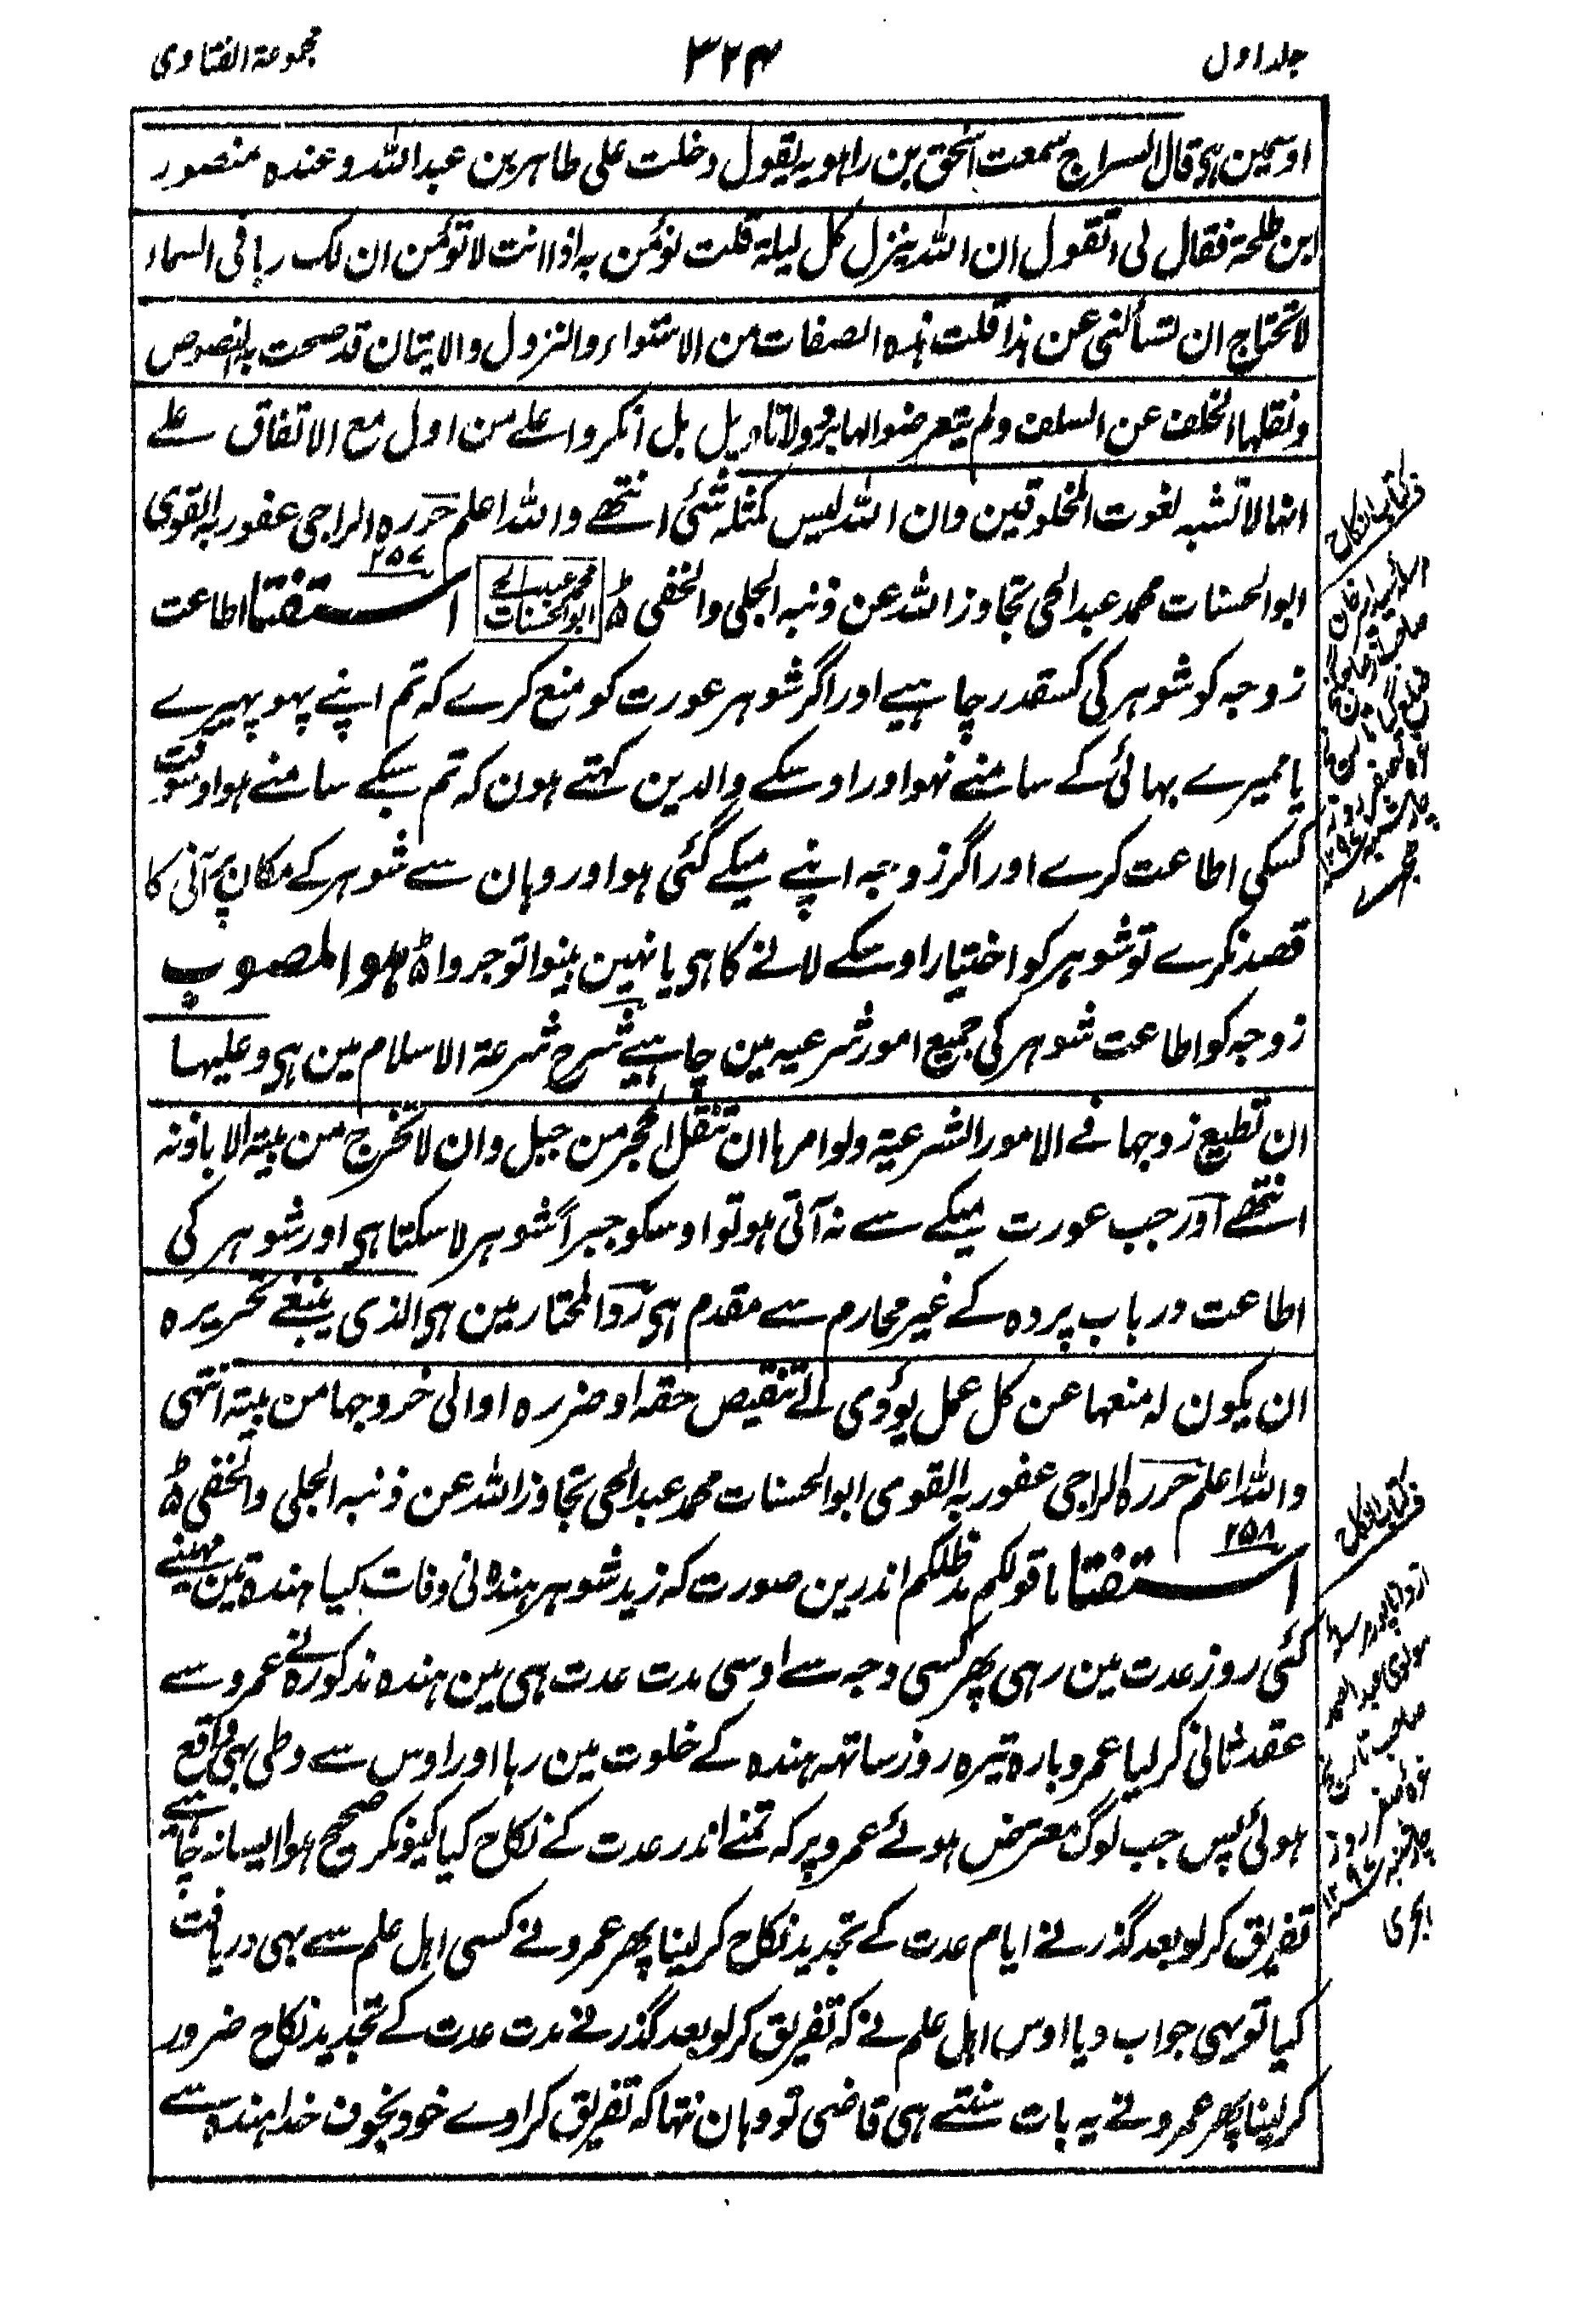 جلد اول
۳۲۴
مجموعۃ الفتاوی
اوسمین ہی قال السراج سمعت اسحٰق بن راہویہ یقول دخلت علی طاہر بن عبداللہ وعندہ منصور
ابن طلحۃ فقال لی اتقول ان اللہ ینزل کل لیلۃ قلت نؤمن بہ اذا انت لا تؤمن ان لک ربا فی السماء
لا تحتاج ان تسألنی عن ہذا قلت ہذہ الصفات من الاستواء والنزول والاتیان قد صحت بہا النصوص
ونقلہا الخلف عن السلف ولم یتعرضوا لہا برد ولا تاویل بل انکروا علے من اول مع الاتفاق علے
انہا لا تشبہ لغوت المخلوقین وان اللہ لیس کمثلہ شئی انتھے واللہ اعلم حررہ الراجی عفو ربہ القوی
ابوالحسنات محمد عبدالحی تجاوز اللہ عن ذنبہ الجلی والخفی
محمد عبدالحی ابوالحسنات
۲۵۷
استفتا اطاعت
زوجہ کو شوہر کی کسقدر چاہیے اور اگر شوہر عورت کو منع کرے کہ تم اپنے پھوپھیرے
یا ممیرے بہائی کے سامنے نہو اور اوسکے والدین کہتے ہون کہ تم سبکے سامنے ہو اوسوقت
کسکی اطاعت کرے اور اگر زوجہ اپنے میکے گئی ہو اور وہان سے شوہر کے مکان پر آنی کا
قصد نکرے تو شوہر کو اختیار اوسکے لانے کا ہی یا نہین بینوا توجروا ہو المصوب
زوجہ کو اطاعت شوہر کی جمیع امور شرعیہ مین چاہیے شرح شرعۃ الاسلام مین ہی وعلیہا
ان تطیع زوجہا فے الامور الشرعیۃ ولو امرہا ان تنقل الحجر من جبل وان لا تخرج من بیتہ الا باذنہ
انتھے اور جب عورت میکے سے نہ آتی ہو تو اوسکو جبراً شوہر لا سکتا ہی اور شوہر کی
اطاعت در باب پردہ کے غیر محارم سے مقدم ہی ردالمختار مین ہی الذی ینبغے تحریرہ
ان یکون لہ منعہا عن کل عمل یؤدی الے تنقیص حقہ او ضررہ او الی خروجہا من بیتہ انتہی
واللہ اعلم حررہ الراجی عفو ربہ القوی ابوالحسنات محمد عبدالحی تجاوز اللہ عن ذنبہ الجلی والخفی
۲۵۸
استفتا ما قولکم مدظلکم اندرین صورت کہ زید شوہر ہندہ نی وفات کیا ہندہ تین مہینے
کئی روز عدت مین رہی پھر کسی وجہ سے اوسی مدت عدت ہی مین ہندہ مذکورہ نے عمرو سے
عقد ثانی کر لیا عمرو بارہ تیرہ روز ساتھ ہندہ کے خلوت مین رہا اور اوس سے وطی بھی واقع
ہوئی پس جب لوگ معترض ہوئے عمرو پر کہ تمنے اندر عدت کے نکاح کیا کیونکر صحیح ہوا ایسا نہ چاہیے
تفریق کرلو بعد گذرنے ایام عدت کے تجدید نکاح کر لینا پھر عمرو نے کسی اہل علم سے بہی دریافت
کیا تو یہی جواب دیا اوس اہل علم نے کہ تفریق کر لو بعد گذرنے مدت عدت کے تجدید نکاح ضرور
کر لینا پھر عمرو نے یہ بات سنتے ہی قاضی تو وہان نتھا کہ تفریق کراوے خود بخوف خدا ہندہ سے